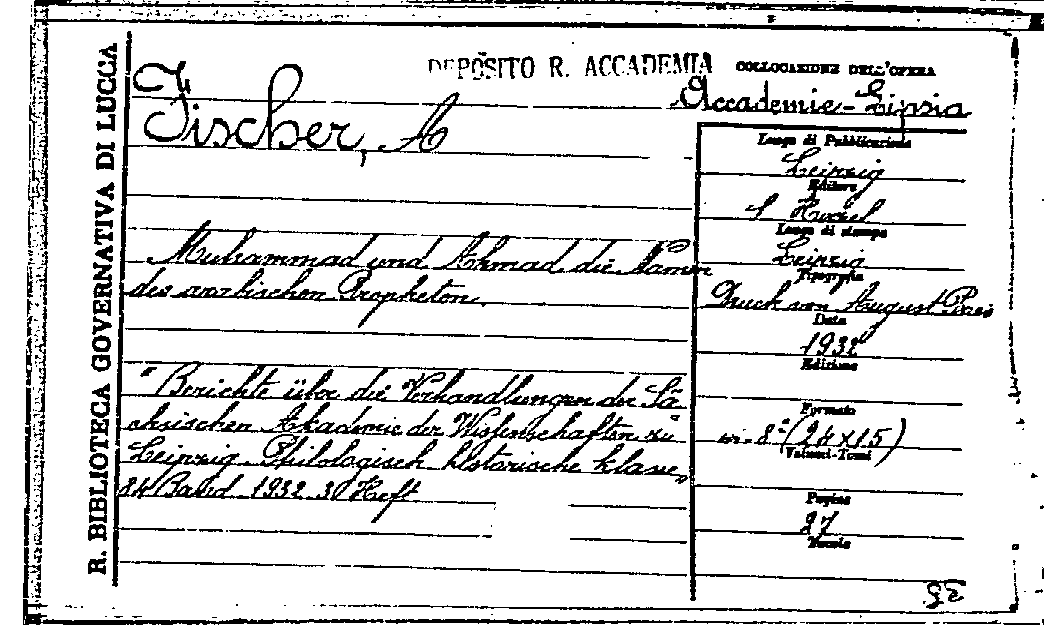 R. BIBLIOTECA GOVERNATIVA DI LUCCA
DEPOSITO R. ACCADEMIA
COLLOCAZIONE DELL'OPERA
Accademie - Lipsia
Fischer, A
Luogo di Pubblicazione
Leipzig
Editore
S Hirzel
Luogo di stampa
Leipzig
Tipografia
Druck von August Pries
Data
1932
Edizione
Formato
in-8° (24x15)
Volumi-Tomi
Pagine
27
Tavole
Muhammad und Ahmad die Namen
des arabischen Propheten
"Berichte über die Verhandlungen der Sä
chsischen Akademie der Wissenschaften zu
Leipzig. Philologisch historische klasse"
84 Band 1932 3 Heft